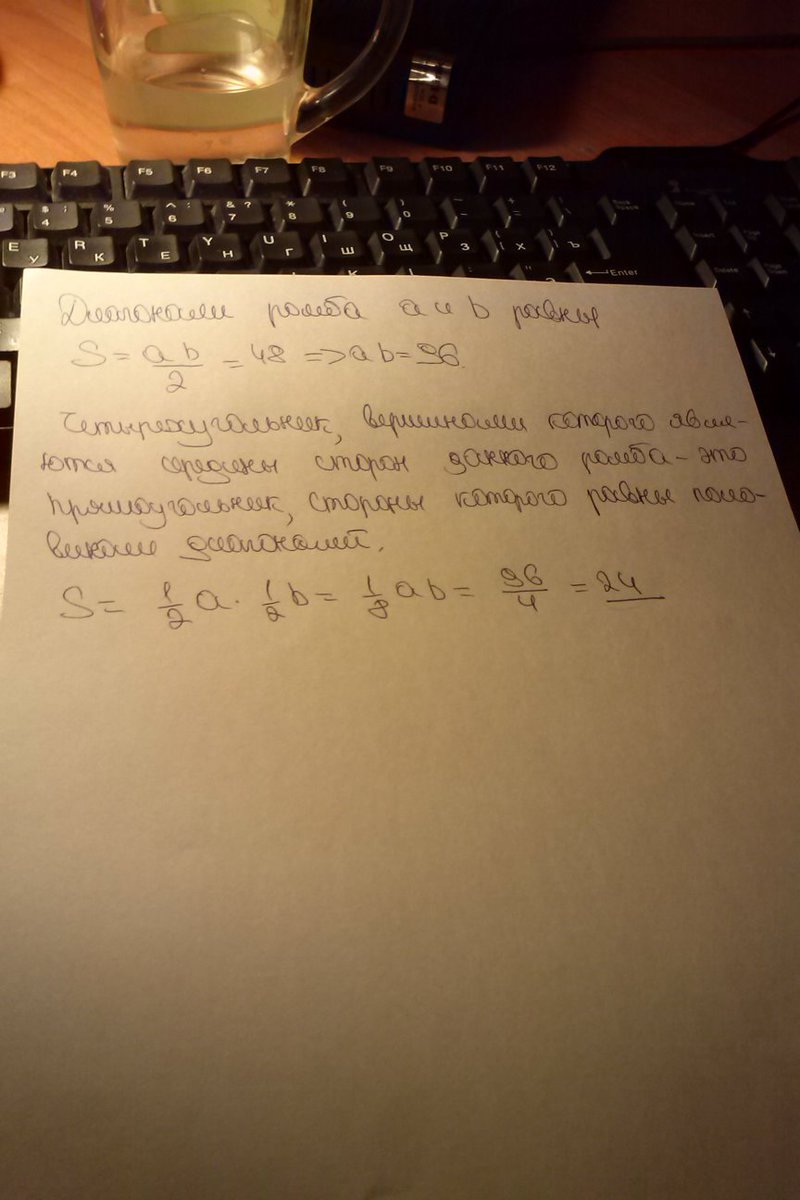 F3 F4 F5 F6 F7 F8 F9 F10 F11 F12
$ ; 4 % 5 ^ : 6 & ? 7 * 8 ( 9 ) 0
E У R К T Е Y Н U Г I Ш O Щ P З Х Ъ
Enter
Диагонали ромба a и b равны
S = ab/2 = 48 => ab = 96.
Четырехугольник, вершинами которого явля-
ются середины сторон данного ромба - это
прямоугольник, стороны которого равны поло-
винам диагоналей.
S = 1/2 a · 1/2 b = 1/8 ab = 96/4 = 24